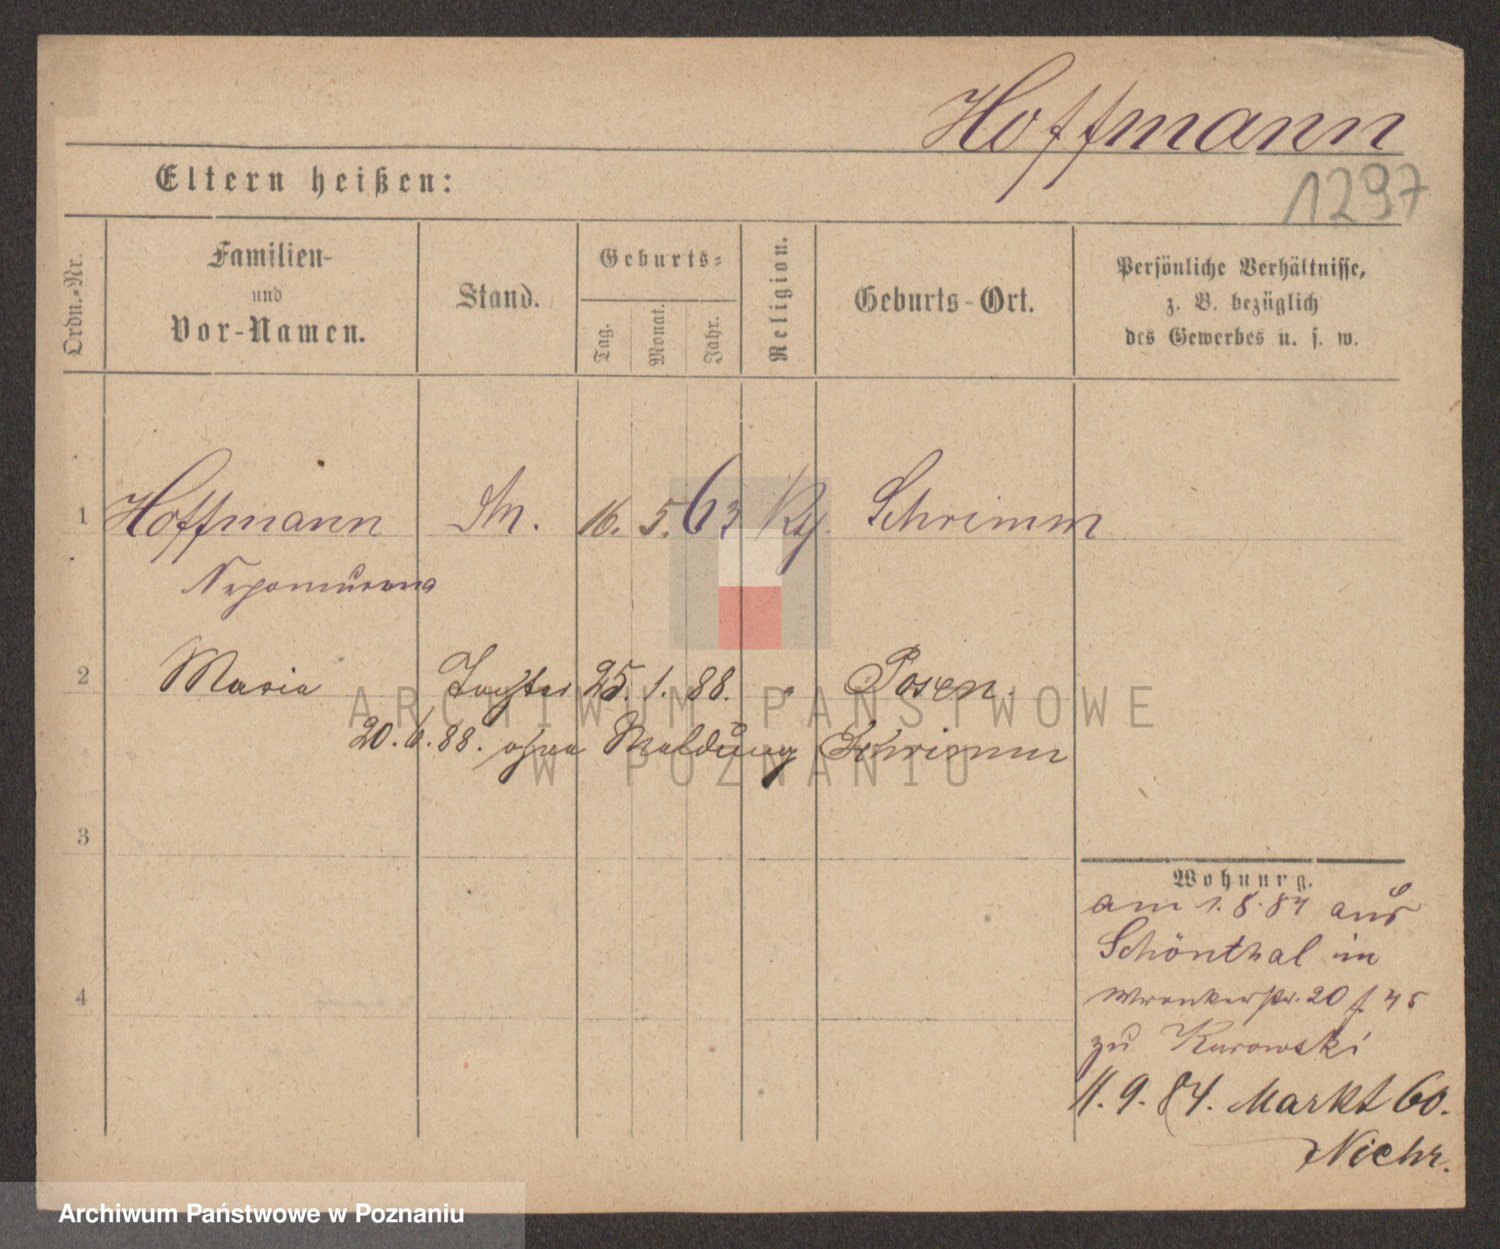 Hoffmann
Eltern heißen:
1297
Ordn.-Nr.
Familien-
und
Vor-Namen.
Stand.
Geburts-
Tag.
Monat.
Jahr.
Religion.
Geburts-Ort.
Persönliche Verhältnisse,
z. B. bezüglich
des Gewerbes u. s. w.
1 Hoffmann 16. 5. 63 Schrimm
Nepomucena
2 Maria Tochter 25. 1. 88. " Posen.
20. 6. 88. ohne Meldung Schrimm
3
Wohnung.
am 1. 8. 84 aus
Schönthal in
4
Wronkerstr. 20
zu Kurowski
11. 9. 84. Markt 60.
Niehr.
ARCHIWUM PAŃSTWOWE
W POZNANIU
Archiwum Państwowe w Poznaniu